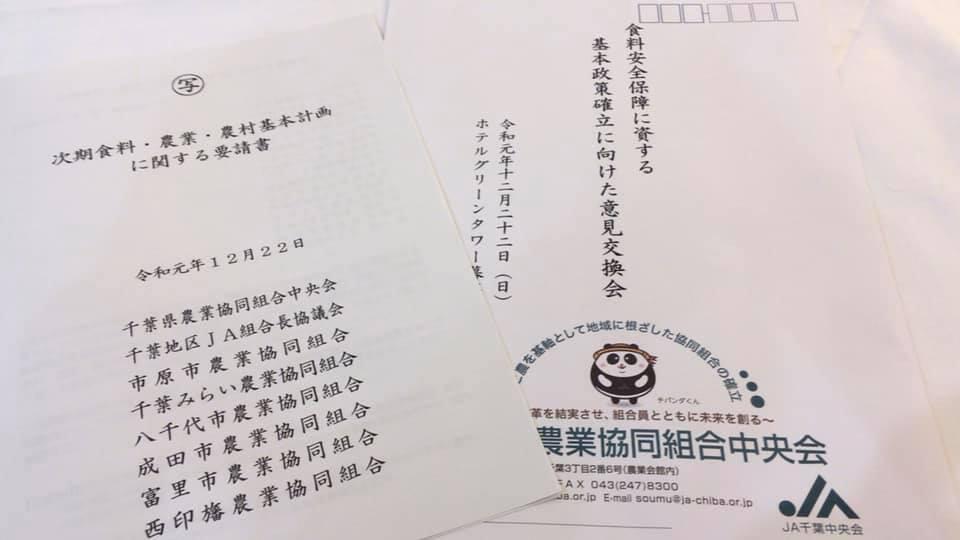 写
次期食料・農業・農村基本計画
に関する要請書
令和元年12月22日
千葉県農業協同組合中央会
千葉地区JA組合長協議会
市原市農業協同組合
千葉みらい農業協同組合
八千代市農業協同組合
成田市農業協同組合
富里市農業協同組合
西印旛農業協同組合
食料安全保障に資する
基本政策確立に向けた意見交換会
令和元年十二月二十二日（日）
ホテルグリーンタワー幕
と農を基軸として地域に根ざした協同組合の確立
チバンダくん
革を結実させ、組合員とともに未来を創る～
農業協同組合中央会
千葉3丁目2番6号(農業会館内)
FAX 043(247)8300
ba.or.jp E-mail soumu@ja-chiba.or.jp
JA
JA千葉中央会